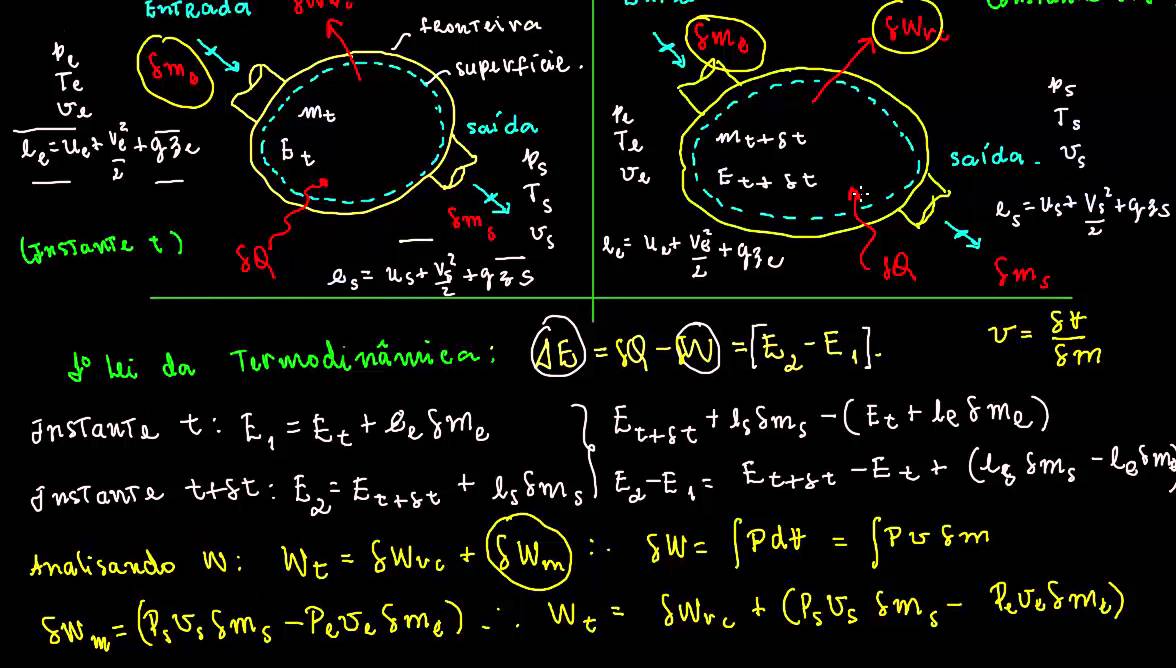 Entrada
δWvc
fronteira
superfície.
δme
pe
Te
ve
ee=ue+Ve²/2+gze
mt
Et
saída
ps
Ts
vs
δms
(Instante t)
δQ
es=us+Vs²/2+gzs
δme
δWvc
pe
Te
ve
mt+δt
Et+δt
ps
Ts
vs
saída.
es=us+Vs²/2+gzs
ee=ue+Ve²/2+gze
δQ
δms
1º Lei da Termodinâmica: ΔE = δQ - W = [E2 - E1].
v = δV/δm
Instante t: E1 = Et + eeδme
Et+δt + esδms - (Et + eeδme)
Instante t+δt: E2 = Et+δt + esδms
E2-E1 = Et+δt - Et + (esδms - eeδm
Analisando W: Wt = δWvc + δWm ∴ δW = ∫PdV = ∫Pvδm
δWm = (Psvsδms - Peveδme) ∴ Wt = δWvc + (Psvsδms - Peveδme)